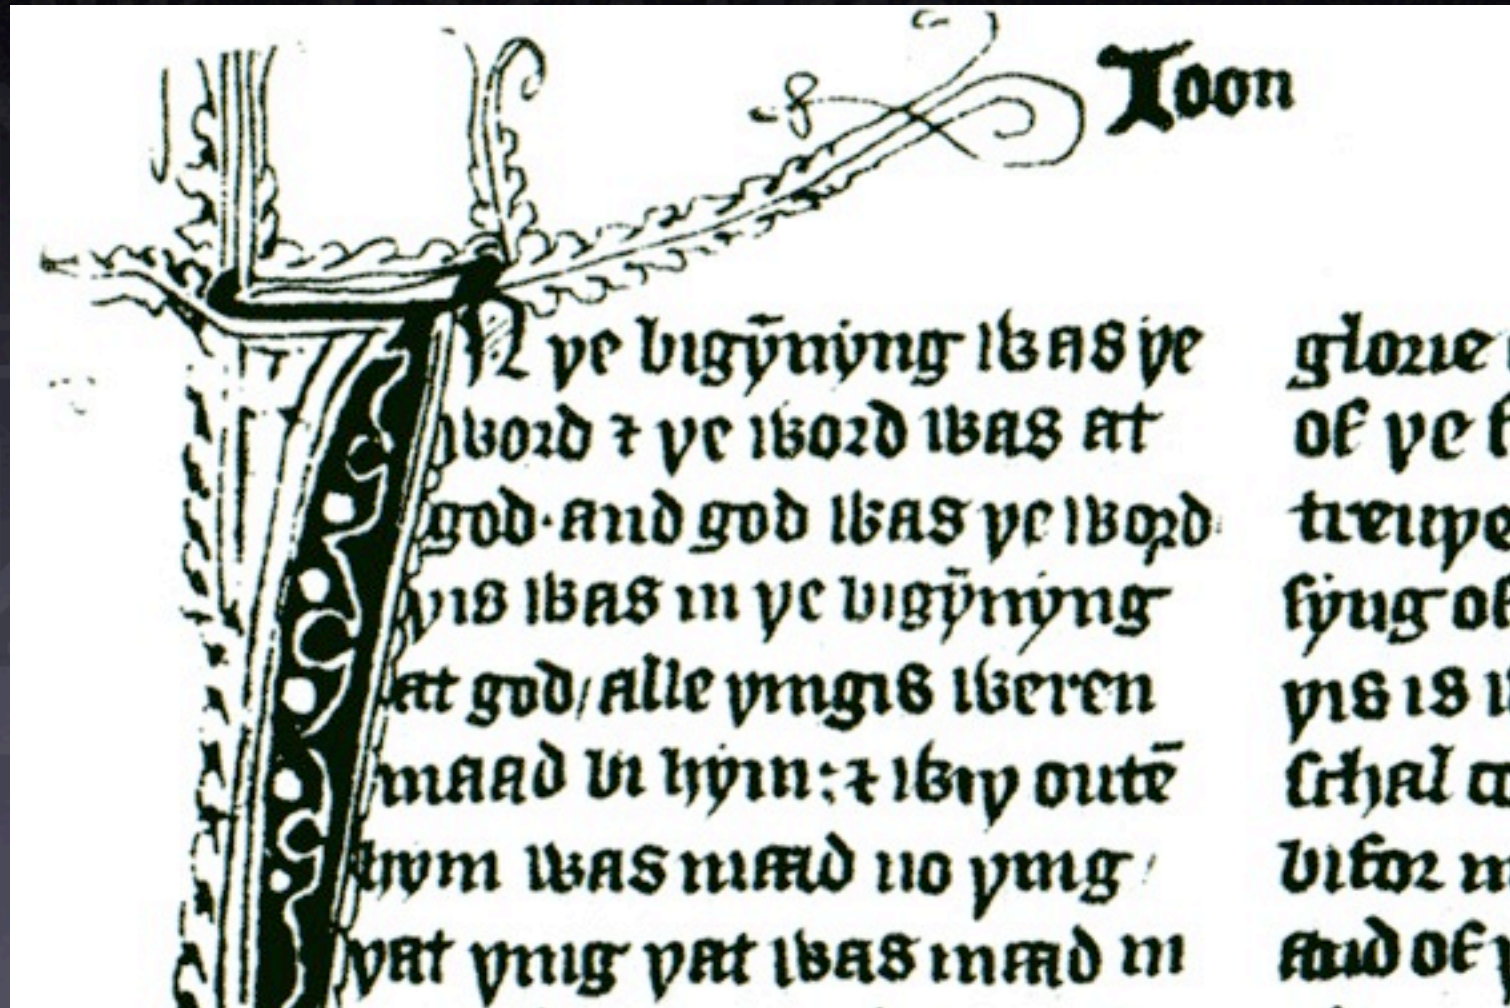 Ioon
IN þe bigȳnyng was þe
word ⁊ þe word was at
god·and god was þe word·
þis was in þe bigȳnyng
at god/alle þingis weren
maad bi hym:⁊ wiþ outē
hym was maad no þing/
þat þing þat was maad in
glorie
of þe
treuþe
syng of
þis is
schal
bifor
and of